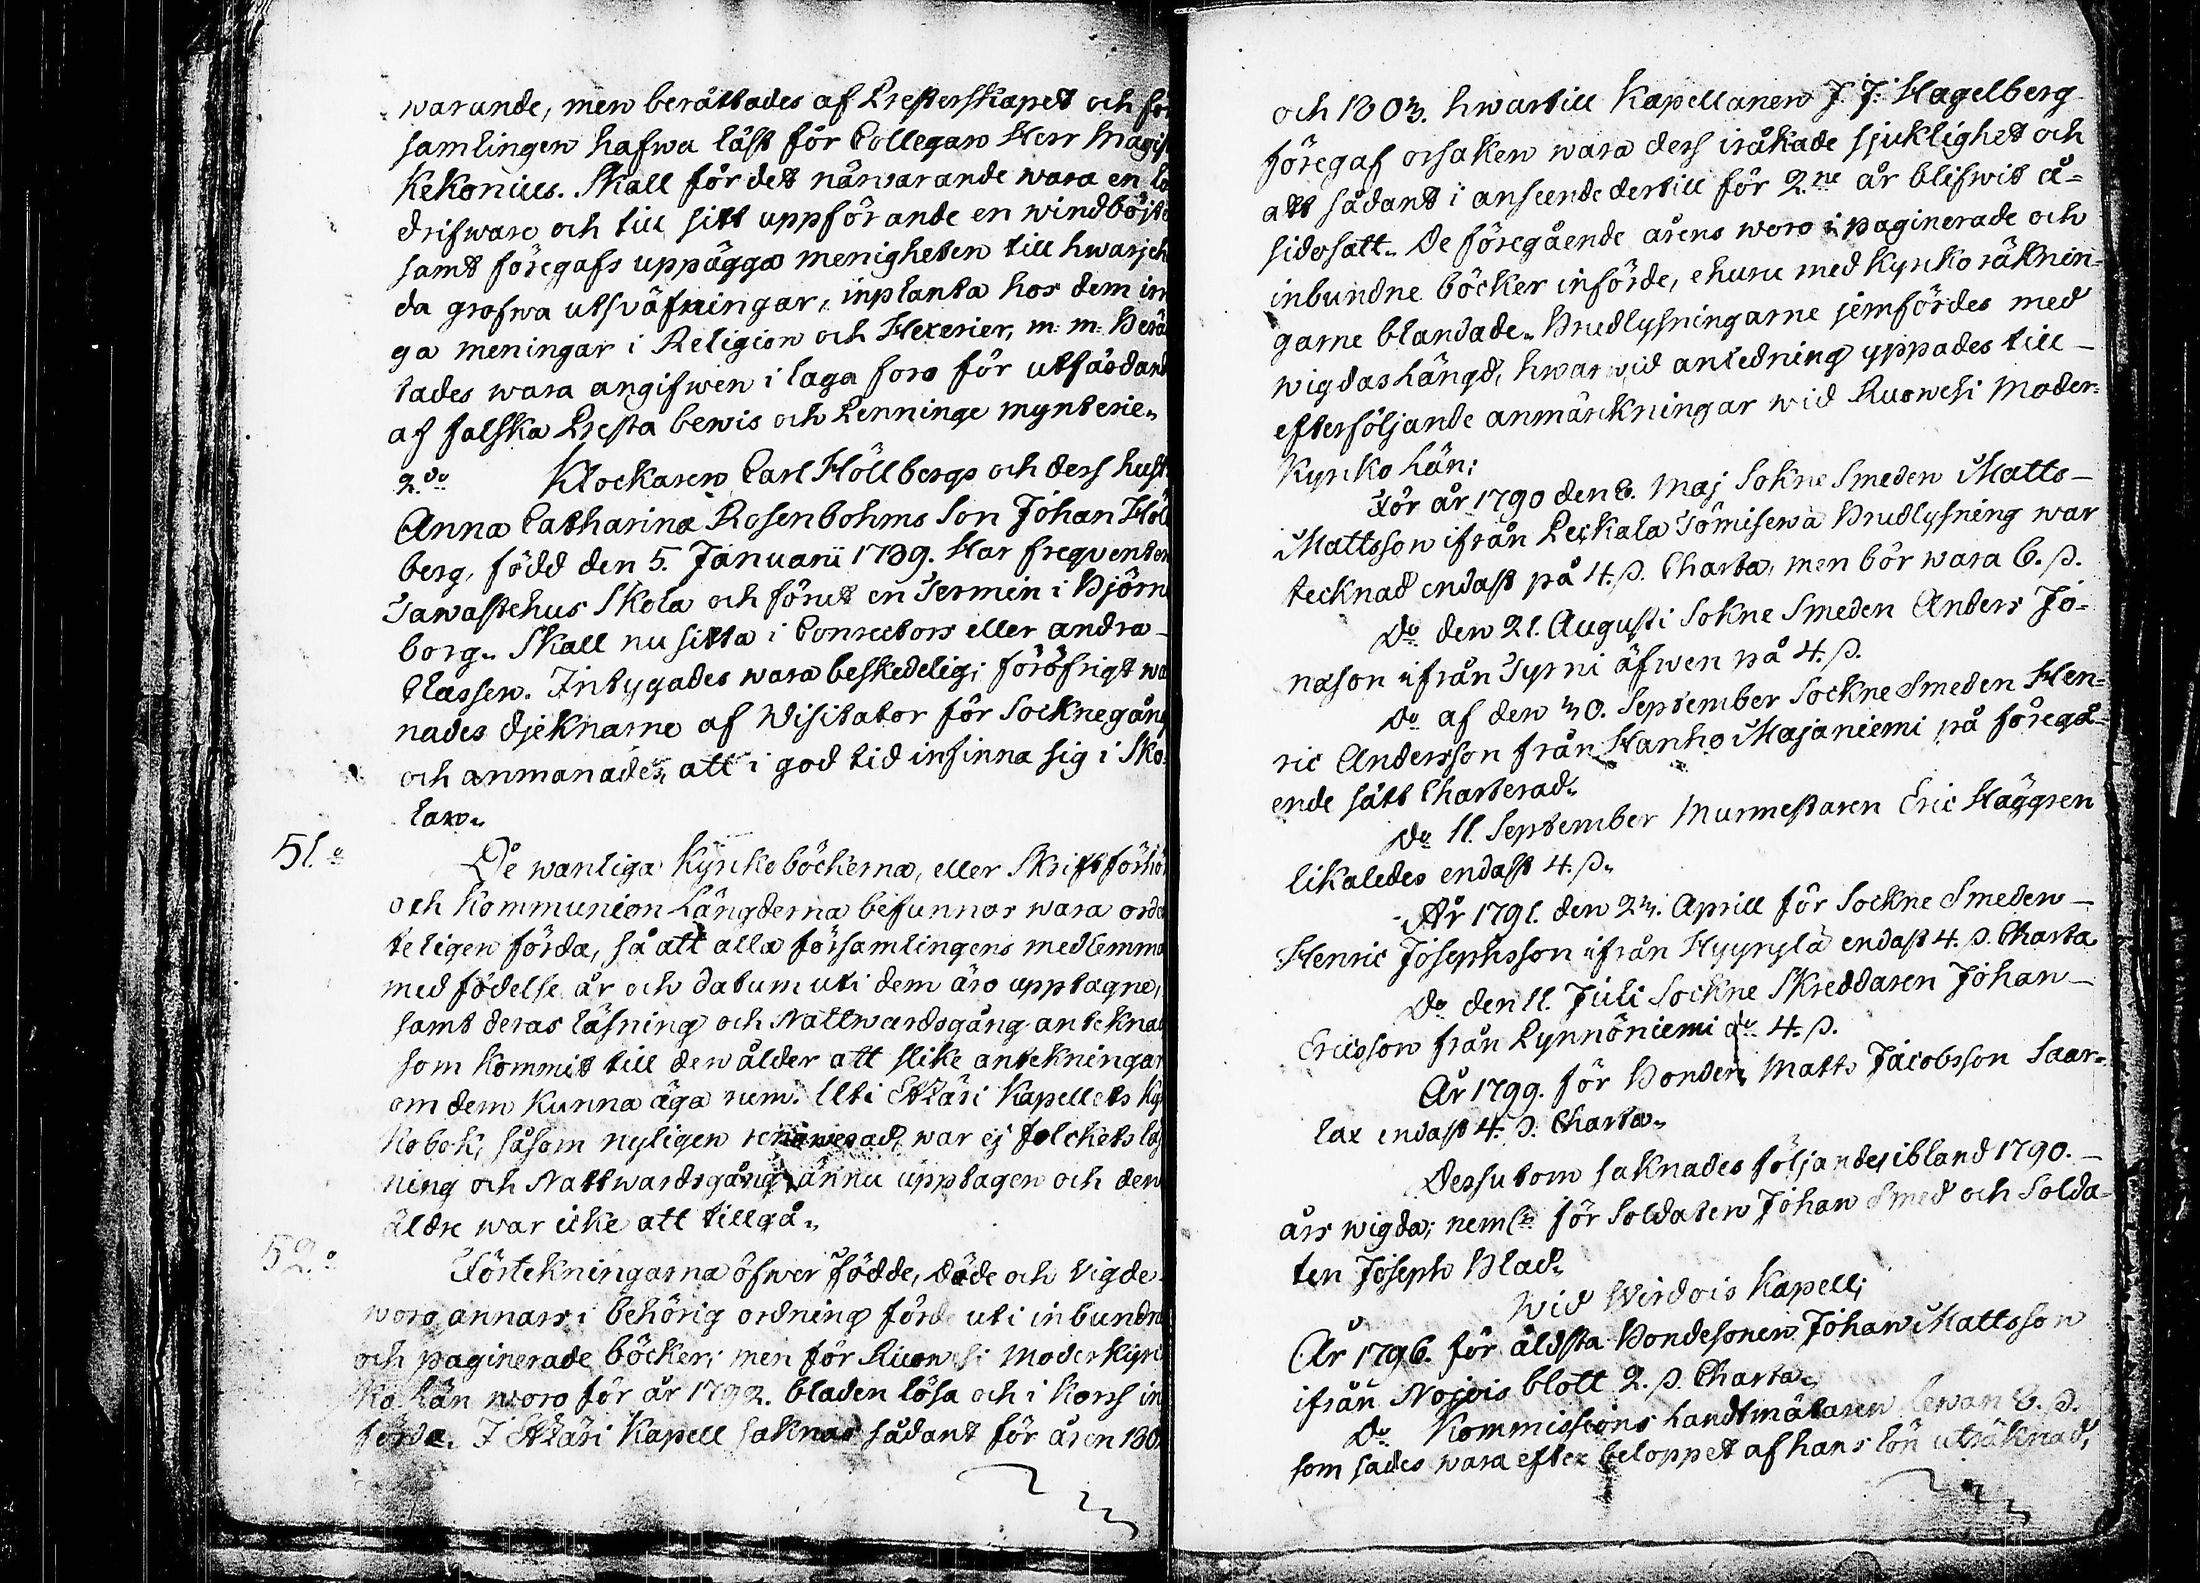 warande, men berättades af Presterskapet och för
samlingen hafwa läst för Collegan Herr Magist
Kekonius. Skall för det närwarande wara en lö
drifware och till sitt uppförande en windböjt
samt föregafs uppägga menigheten till hwarjeh
da grofwa utsväfningar, inplanta hos dem irr
ga meningar i Religion och Hexerier, m: m: Berä
tades wara angifwen i laga foro för utfärdand
af falska Presta bewis och Penninge mynterie„
2do Klockaren Carl Höllbergs och ders hust
Anna Catharina Rosenbohms Son Johan Höl
berg, född den 5. Januarii 1789. Har frequenter
Tawastehus Skola och förut en Termin i Björne
borg„ Skall nu sitta i Conrectors eller andra –
Classen. Intygades wara beskedelig; föröfrigt wa
nades djeknarne af Visitator för Socknegång
och anmanades, att i god tid infinna sig i Sko-
lan„
51.o
De wanliga Kyrkoböckerna, eller Skriftförhör
och Kommunion Längderna befunnos wara orde
teligen förda, så att alla församlingens medlemma
med födelse år och datum uti dem äro upptagne,
samt deras läsning och Nattwardsgång antekna
som kommit till den ålder att slike antekningar
om dem kunna äga rum. Uti Etzäri Kapellets Kyr
kobok, såsom nyligen renowerad, war ej folckets läs
ning och Nattwardsgång ännu upptagen och den
äldre war icke att tillgå„
52.o
Förtekningarna öfwer Födde, Döde och Vigde
woro annars i behörig ordning förde uti inbundne
och paginerade böcker; men för Ruowesi Moderkyr
ko län woro för år 1792. bladen lösa och i kors in
förde. I Etzäri Kapell saknas sådant för åren 180
och 1803. hwartill Kapellanen J. J. Hagelberg
föregaf orsaken wara ders iråkade sjuklighet och
att sådant i anseende dertill för 2ne år blifwit å-
sidosatt„ De föregående årens woro i paginerade och
inbundne böcker införde, ehuru med Kyrko räknin-
garne blandade„ Brudlysningarne jemfördes med
wigdas Längd, hwarwid anledning yppades till –
efterföljande anmärkningar wid Ruowesi Moder-
kyrko län:
För år 1790 den 8. Maj Sokne Smeden Matts –
Mattsson ifrån Peckala Tömisewa Brudlysning war
tecknad endast på 4. ß. Charta, men bör wara 6. ß.
Do den 21. Augusti Sokne Smeden Anders Jo-
nason ifrån Syrni äfwen på 4. ß.
Do af den 30. September Sockne Smeden Hen-
ric Andersson från Hanho Majaniemi på föregå-
ende sätt Charterad„
Do 11. September Murmestaren Eric Häggren
likaledes endast 4. ß„
År 1791. den 23. Aprill för Sockne Smeden –
Henric Josephsson ifrån Hyyrylä endast 4. ß. Charta
Do den 11. Juli Sockne Skreddaren Johan –
Ericsson från Pynnöniemi do 4. ß.
År 1799. för Bonden Matts Jacobsson Saar-
lax endast 4. ß. Charta„
Dessutom saknades följande ibland 1790. –
års wigda; nemln för Soldaten Johan Smed och Solda-
ten Joseph Blad„
Wid Wirdois Kapell;
År 1796. för äldsta Bondesonen Johan Mattsson
ifrån Nojois blott 2. ß. Charta„
Do Kommissions Landtmätaren Lewan 8. ß.
som sades wara efter beloppet af hans lön uträknad,